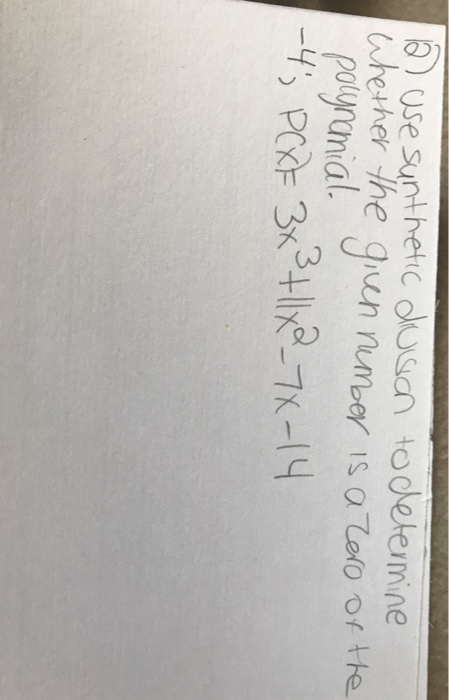 12) use synthetic division to determine
whether the given number is a zero of the
polynomial.
-4; P(x)= 3x³+11x²-7x-14